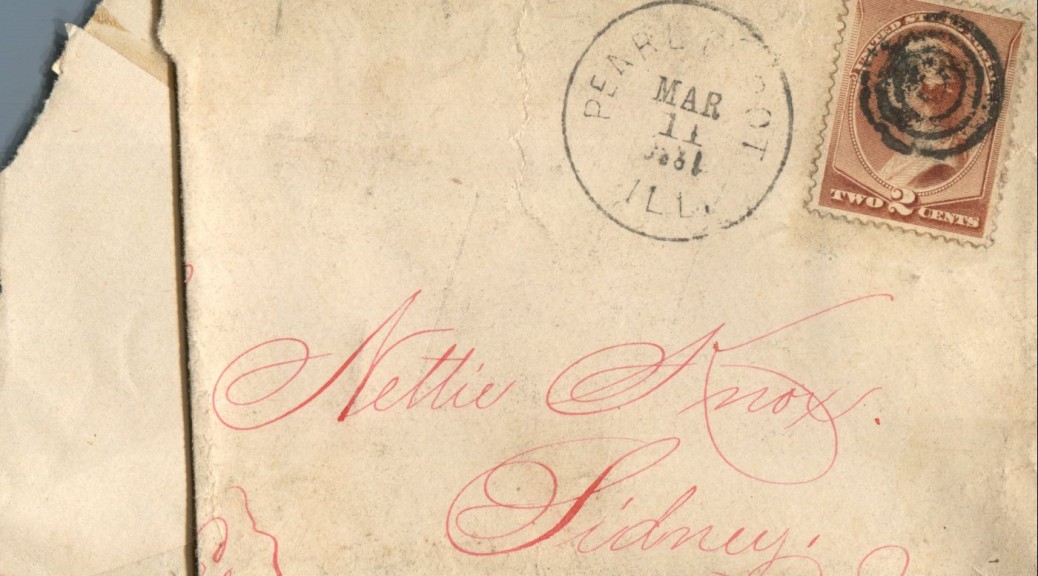 PEARL DEPOT
MAR
11
ILL.
UNITED STATES POSTAGE
TWO 2 CENTS
Nettie Knox.
Sidney.